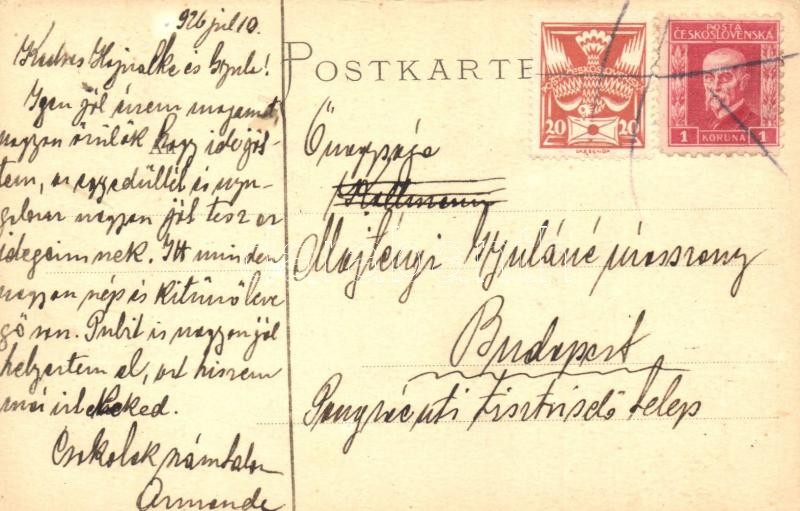 926 jul 10.
Kedves Hajnalke és Gyula!
Igen jól érzem magamat,
nagyon örülök hogy ide jöt-
tem, az egyedüllét és nyu-
galom nagyon jól tesz az
idegeimnek. Itt minden
nagyon szép és kitünő leve
gő van. Pubit is nagyon jól
helyeztem el, azt hiszem
már irt neked.
Csokolok számtalan
Armande
POSTKARTE
20 20
POSTA
ČESKOSLOVENSKÁ
1 KORUNA 1
Önagysága
Majtényi Gyuláné úrasszony
Budapest
Pongrác úti tisztviselő telep